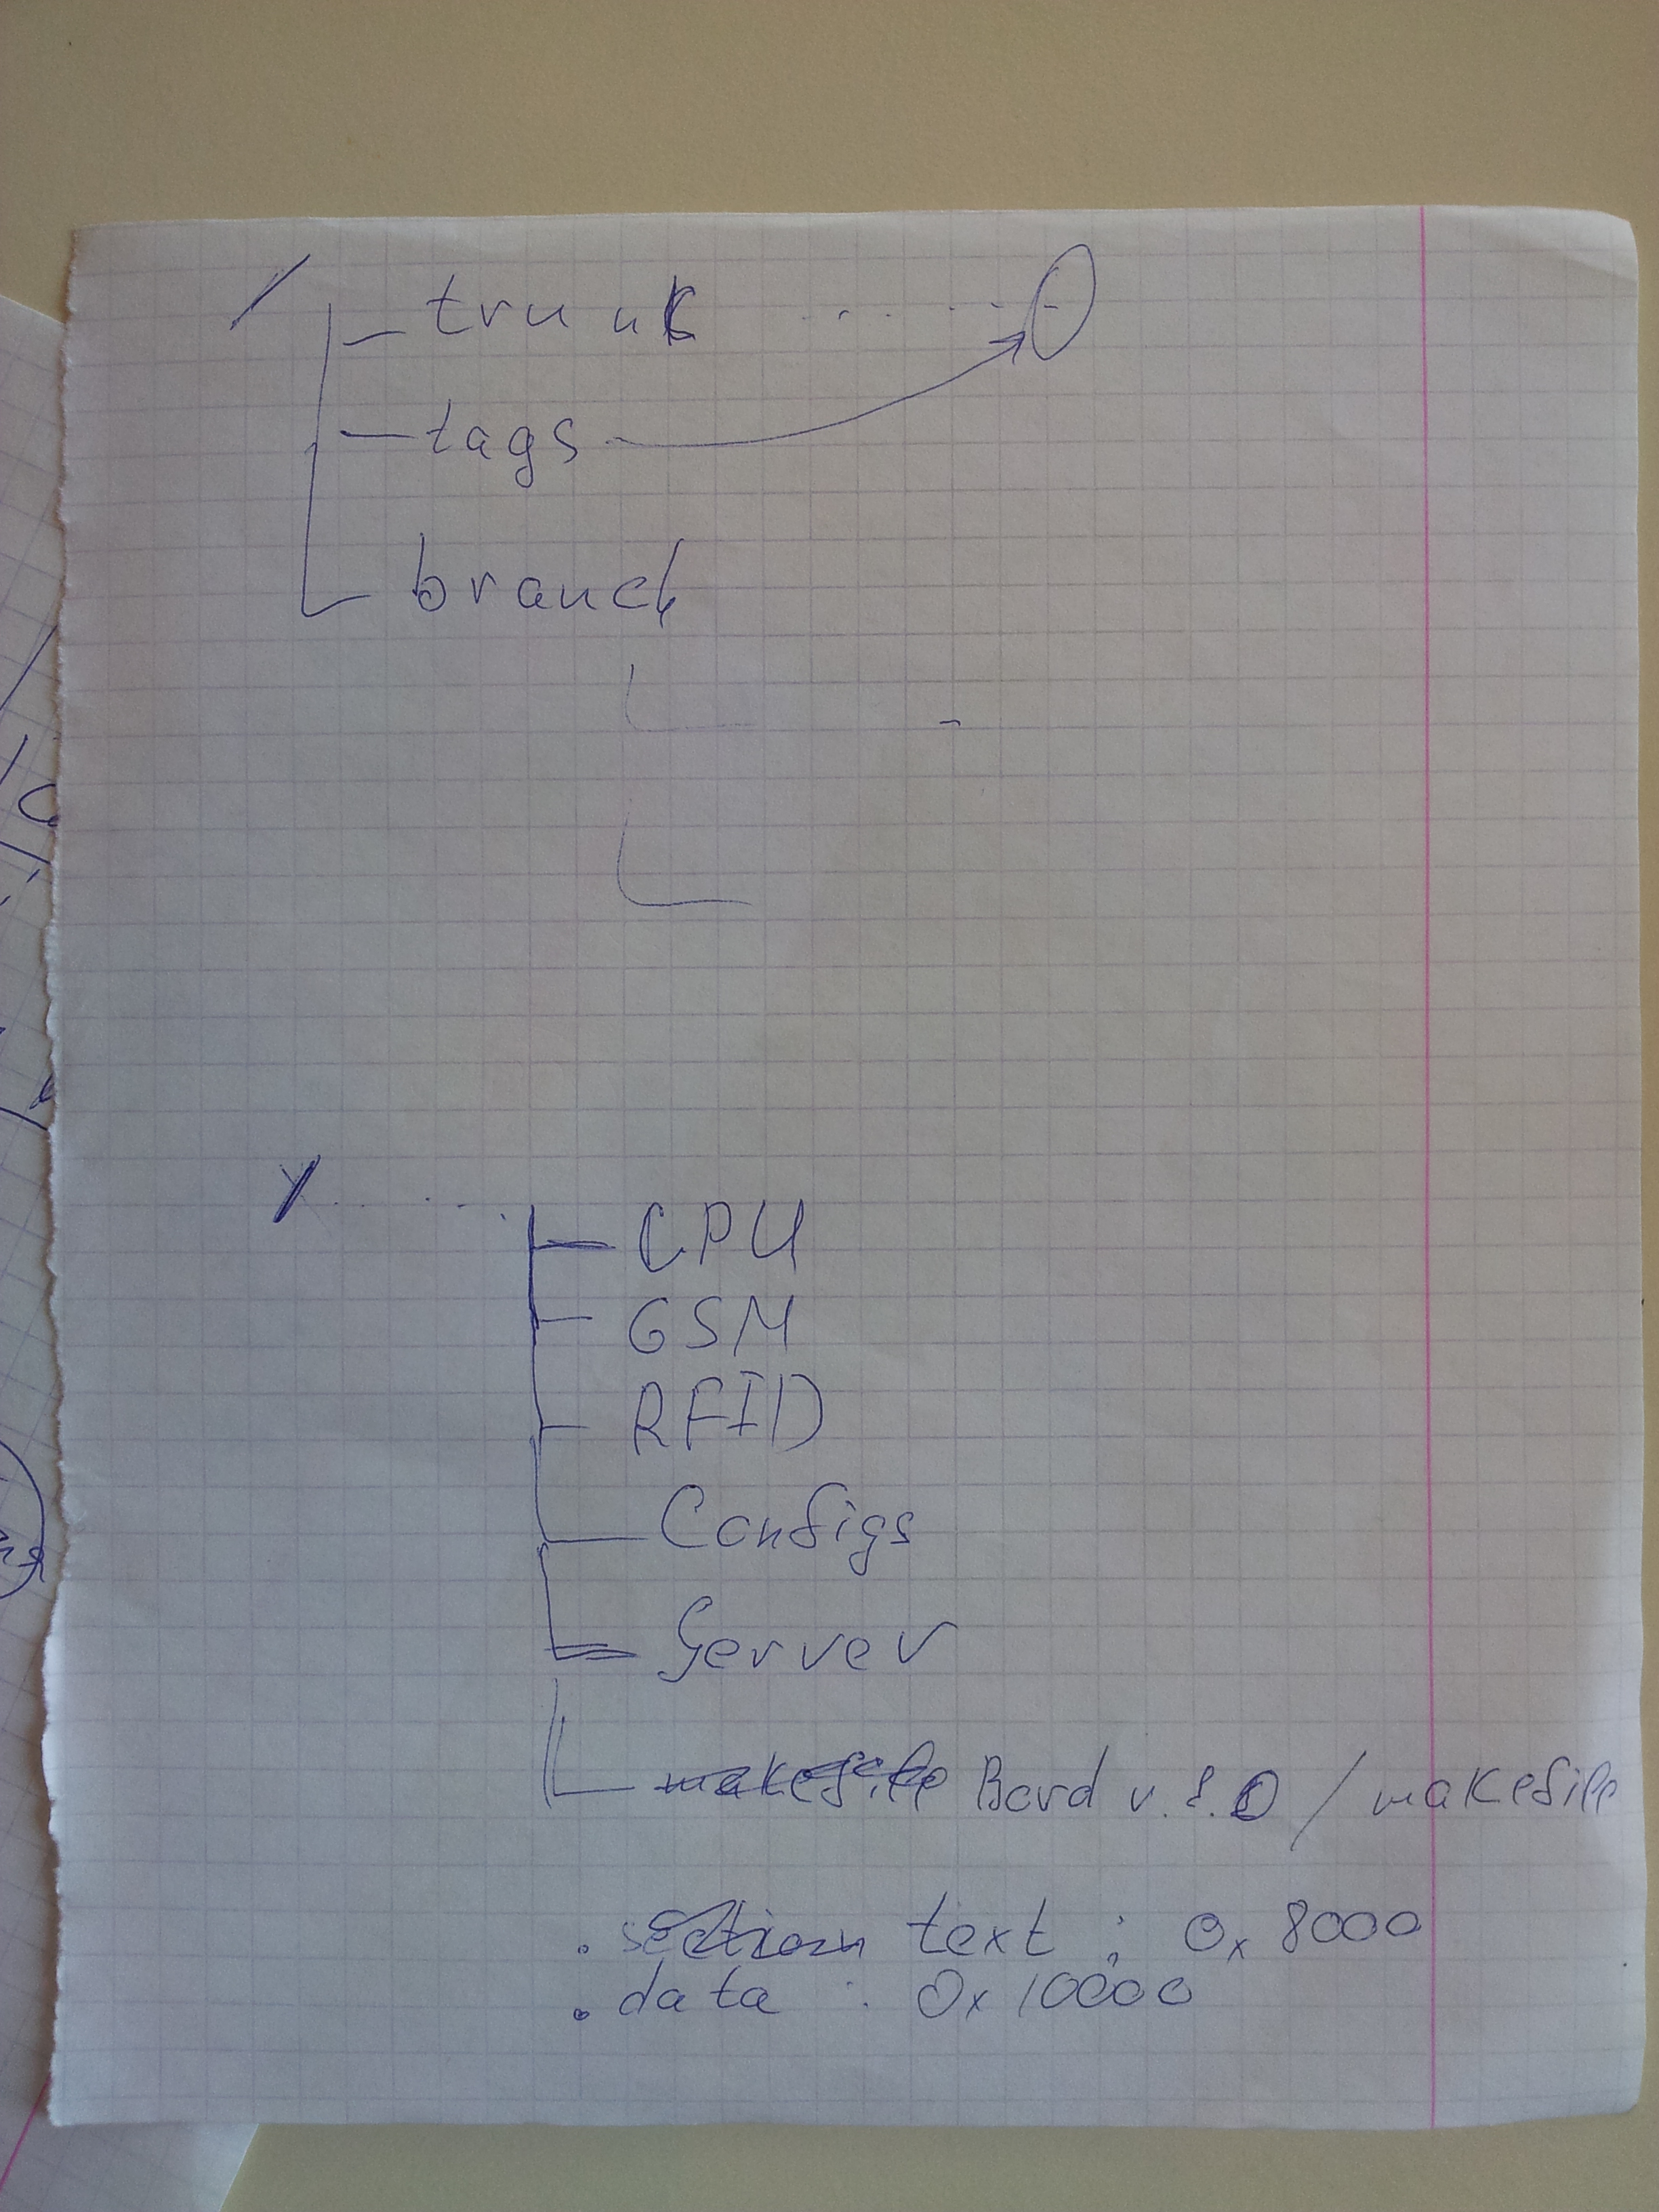 /
trunk
tags
branch
/
CPU
GSM
RFID
Configs
Server
makefile Bord v. 8.0 / makefile
. section text : 0x 8000
. data : 0x 10000